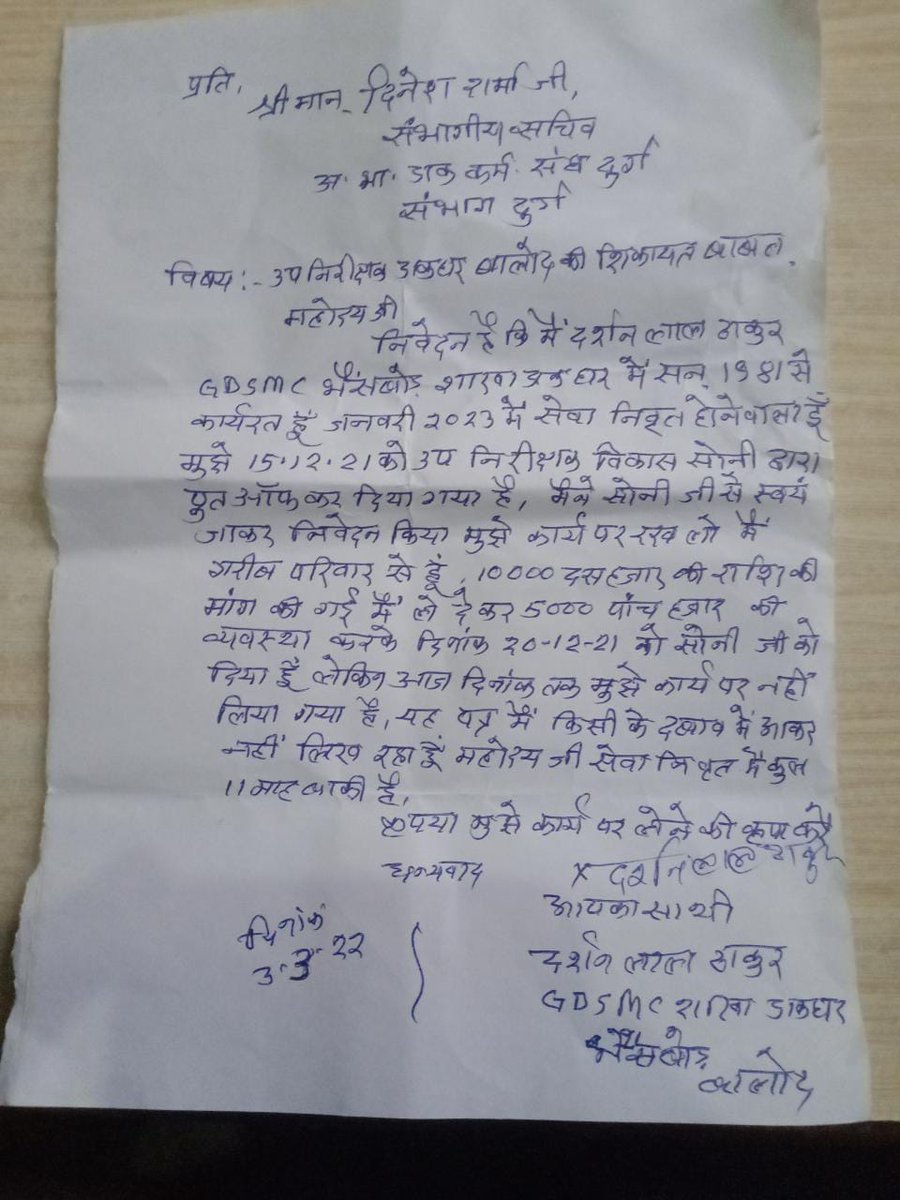 प्रति,
श्रीमान् दिनेश शर्मा जी,
संभागीय सचिव
अ. भा. डाक कर्म. संघ दुर्ग
संभाग दुर्ग
विषय :- उप निरीक्षक डाकघर बालोद की शिकायत बाबत,
महोदय जी
निवेदन है कि मैं दर्शन लाल ठाकुर
GDSMC भैंसबोड़ शाखा डाकघर में सन् 1981 से
कार्यरत हूँ जनवरी 2023 में सेवा निवृत होने वाला हूँ
मुझे 15.12.21 को उप निरीक्षक विकास सोनी द्वारा
पुत ऑफ कर दिया गया है, मैंने सोनी जी से स्वयं
जाकर निवेदन किया मुझे कार्य पर रख लो मैं
गरीब परिवार से हूं, 10000 दस हजार की राशि की
मांग की गई मैं ले देकर 5000 पांच हजार की
व्यवस्था करके दिनांक 20-12-21 को सोनी जी को
दिया हूँ लेकिन आज दिनांक तक मुझे कार्य पर नहीं
लिया गया है, यह पत्र मैं किसी के दबाव में आकर
नहीं लिख रहा हूँ महोदय जी सेवा निवृत में कुल
11 माह बाकी है,
कृपया मुझे कार्य पर लेने की कृपा करें
धन्यवाद
x दर्शन लाल ठाकुर
आपका साथी
दिनांक
3.3.22
दर्शन लाल ठाकुर
GDSMC शाखा डाकघर
भैंसबोड़
बालोद